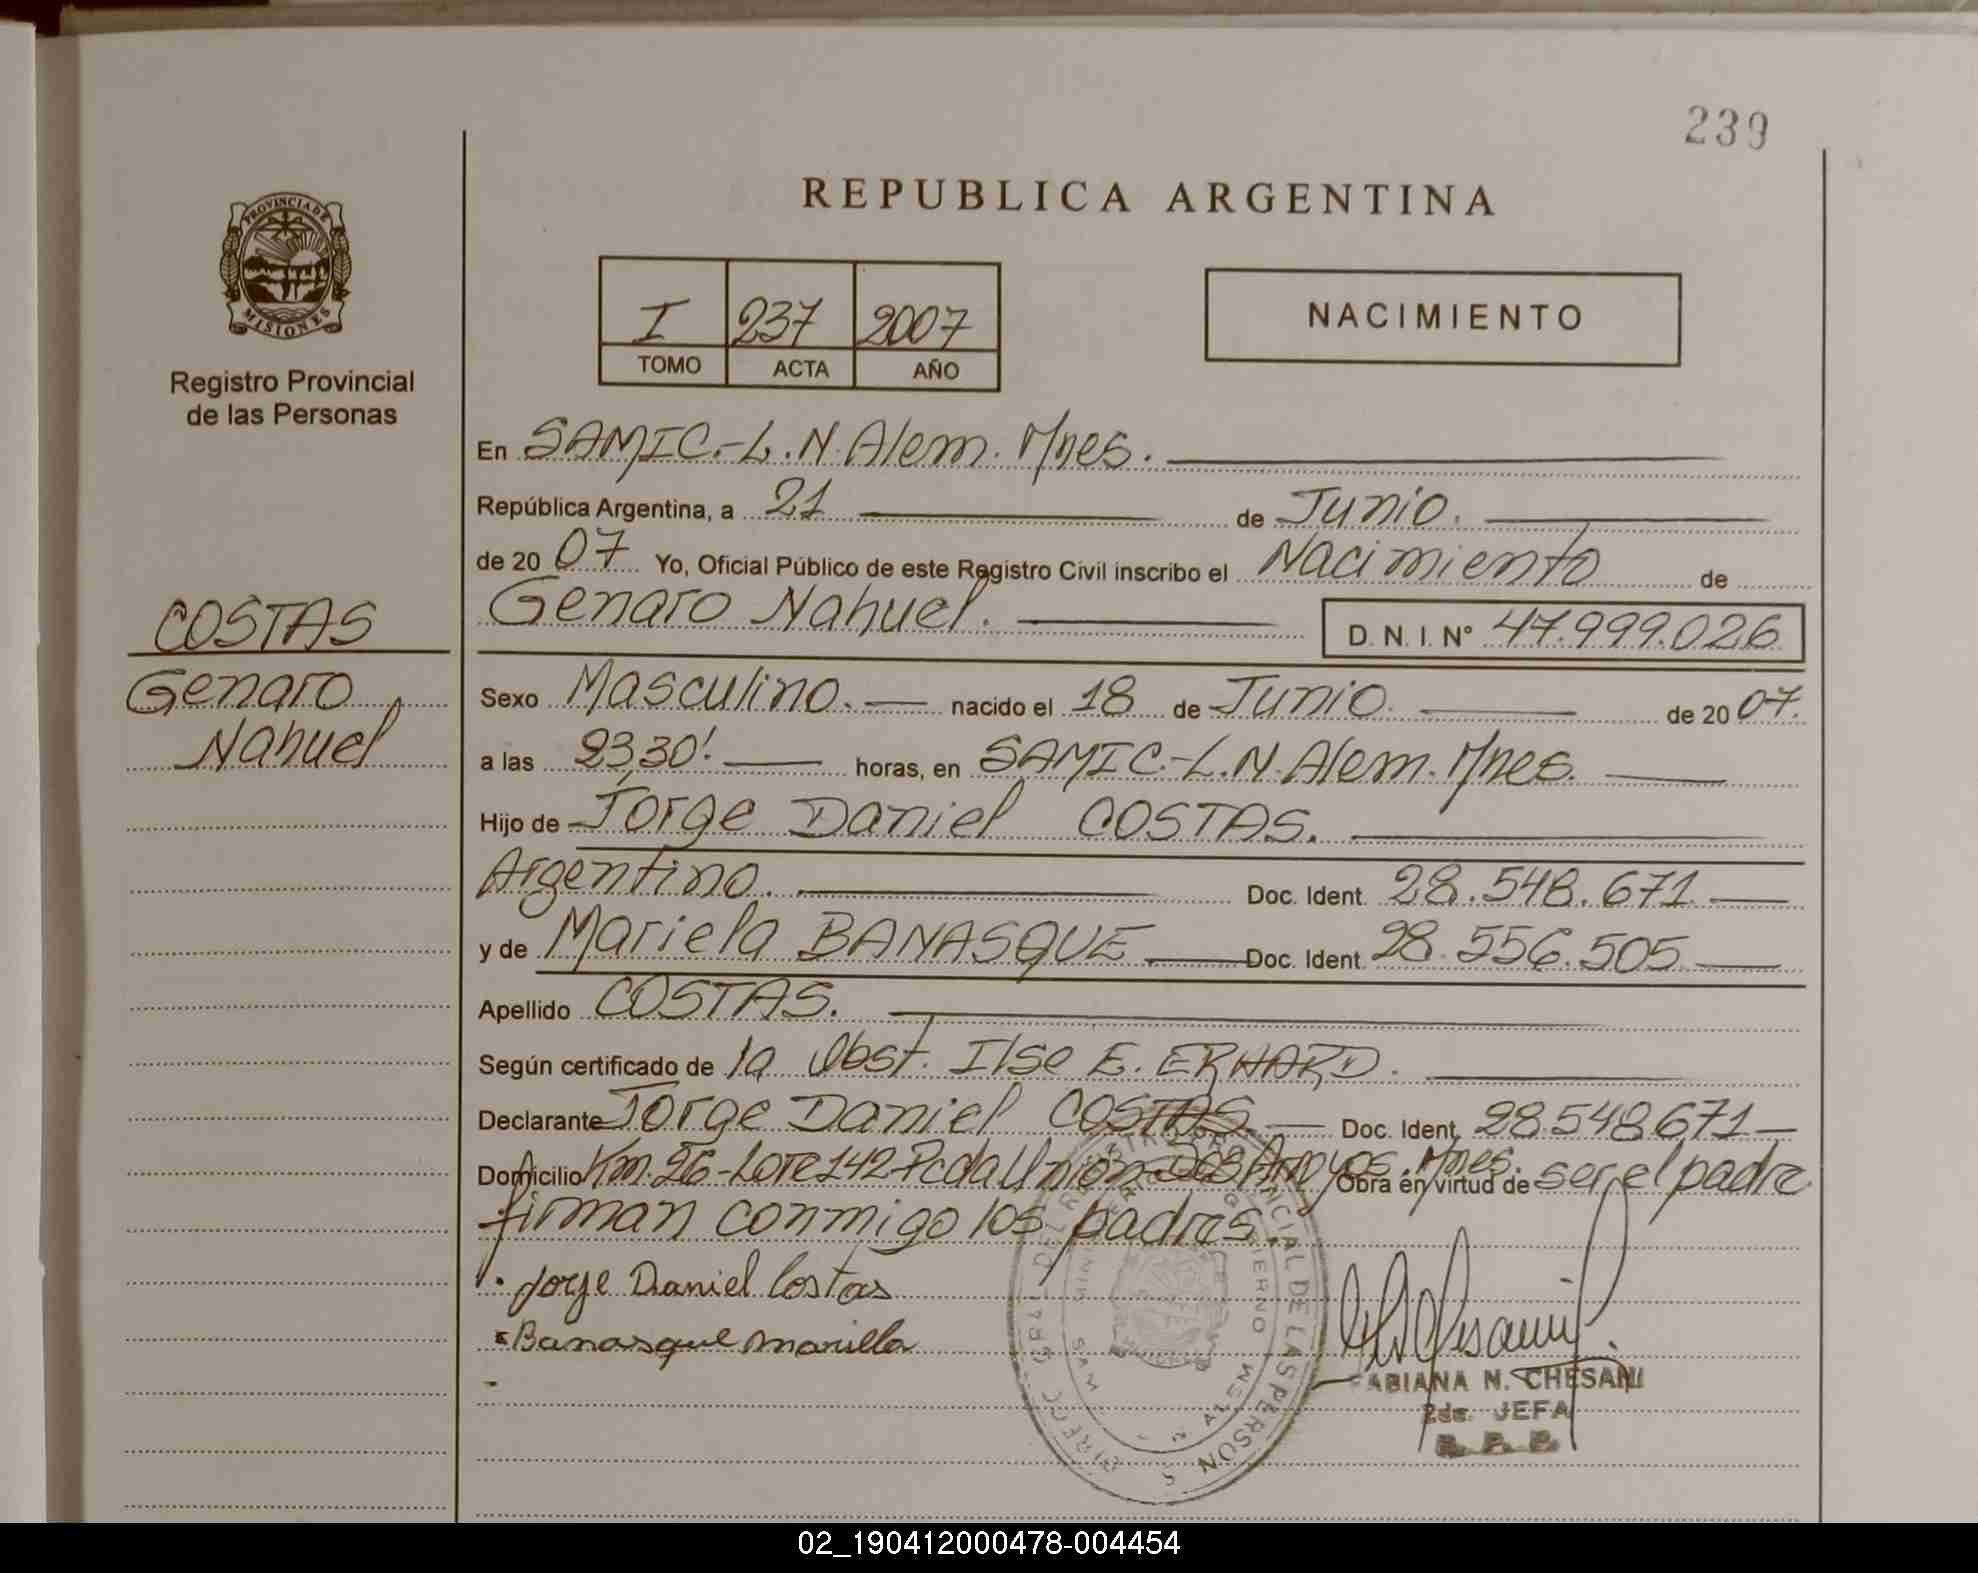 239
REPUBLICA ARGENTINA
PROVINCIA DE
MISIONES
Registro Provincial
de las Personas
I 237 2007
TOMO ACTA AÑO
NACIMIENTO
En SAMIC.-L.N.Alem. Mnes.
República Argentina, a 21 de Junio.
de 20 07 Yo, Oficial Público de este Registro Civil inscribo el Nacimiento de
Genaro Nahuel. D. N. I. Nº 47.999.026
COSTAS
Genaro
Nahuel
Sexo Masculino. nacido el 18 de Junio. de 20 07.
a las 2330'. horas, en SAMIC.-L.N.Alem. Mnes.
Hijo de Jorge Daniel COSTAS.
Argentino. Doc. Ident. 28.548.671
y de Mariela BANASQUE Doc. Ident. 28.556.505
Apellido COSTAS.
Según certificado de la Obst. Ilse E. ERHARD.
Declarante Jorge Daniel COSTAS. Doc. Ident. 28548671
Domicilio Km. 26-Lote 142 Pcda Unión-Dos Arroyos. Mnes. Obra en virtud de ser el padre
firman conmigo los padres.
Jorge Daniel Costas
Banasque mariella
FABIANA N. CHESANI
2da. JEFA
R. P. P.
02_190412000478-004454